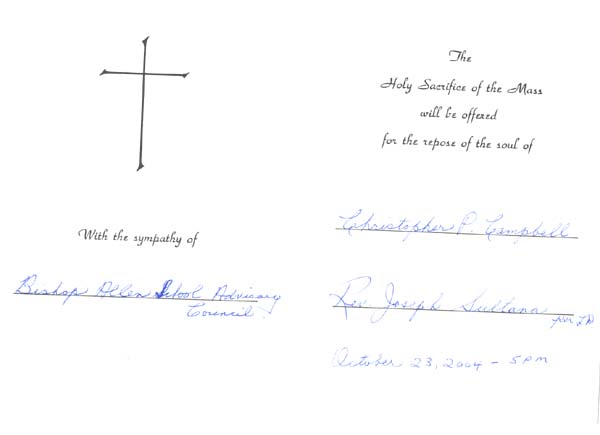 With the sympathy of
Bishop Allen School Advisory
Council
The
Holy Sacrifice of the Mass
will be offered
for the repose of the soul of
Christopher P. Campbell
Rev Joseph Sultana
per LD
October 23, 2004 - 5 PM